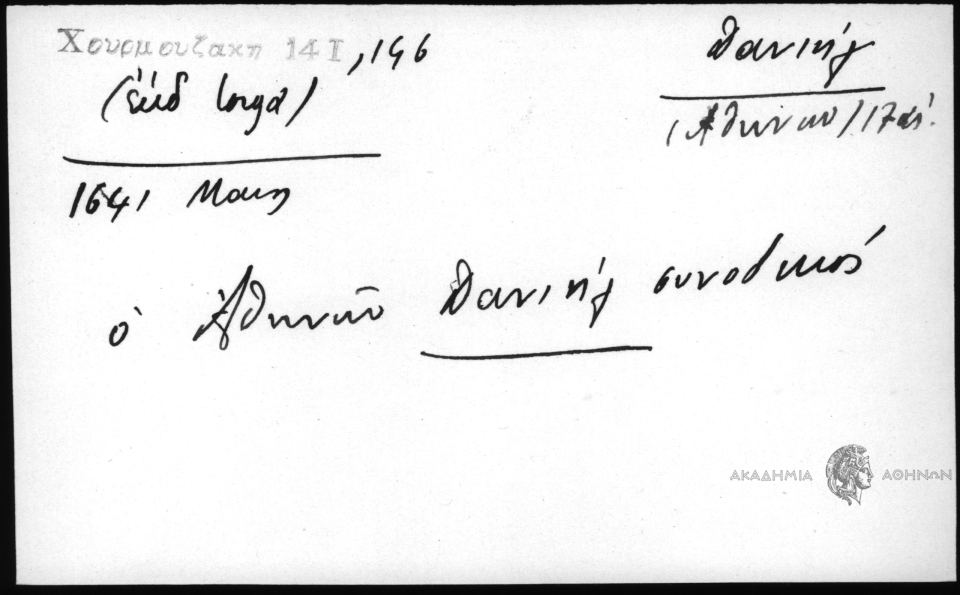 Χουρμουζακη 14 Ι, 196
(ἔκδ Iorga)
Δανιήλ
(Ἀθηνῶν) 17 αἰ.
1641 Μαιη
ὁ Ἀθηνῶν Δανιήλ συνοδικῶς
ΑΚΑΔΗΜΙΑ ΑΘΗΝΩΝ